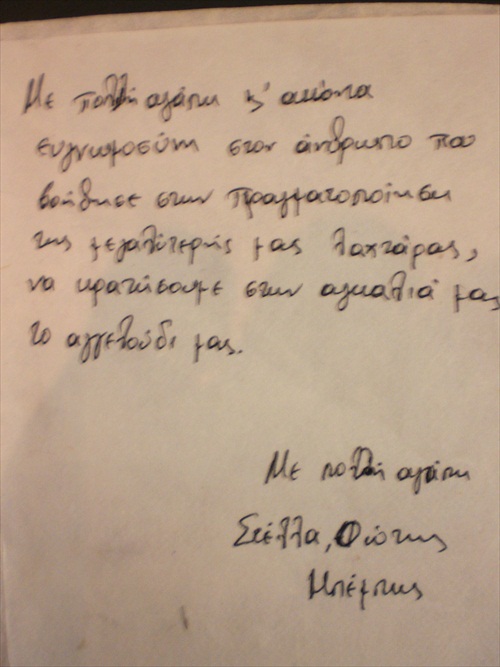 Με πολλή αγάπη κ' αιώνια
ευγνωμοσύνη στον άνθρωπο που
βοήθησε στην πραγματοποίηση
της μεγαλύτερης μας λαχτάρας,
να κρατήσουμε στην αγκαλιά μας
το αγγελούδι μας.
Με πολλή αγάπη
Στέλλα, Φώτης
Μπέμπης